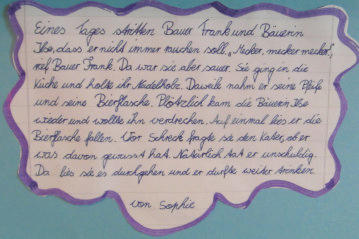 Eines Tages stritten Bauer Frank und Bäuerin
Ilse, dass er nicht immer rauchen soll. „Mecker, mecker mecker",
rief Bauer Frank. Da war sie aber sauer. Sie ging in die
Küche und holte ihr Nudelholz. Daweile nahm er seine Pfeife
und seine Bierflasche. Plötzlich kam die Bäuerin Ilse
wieder und wollte ihn verdreschen. Auf einmal lies er die
Bierflasche fallen. Vor Schreck fragte sie den Kater, ob er
was davon gewusst hat. Natürlich tat er unschuldig.
Da lies sie es durchgehen und er durfte weiter trinken.
von Sophie